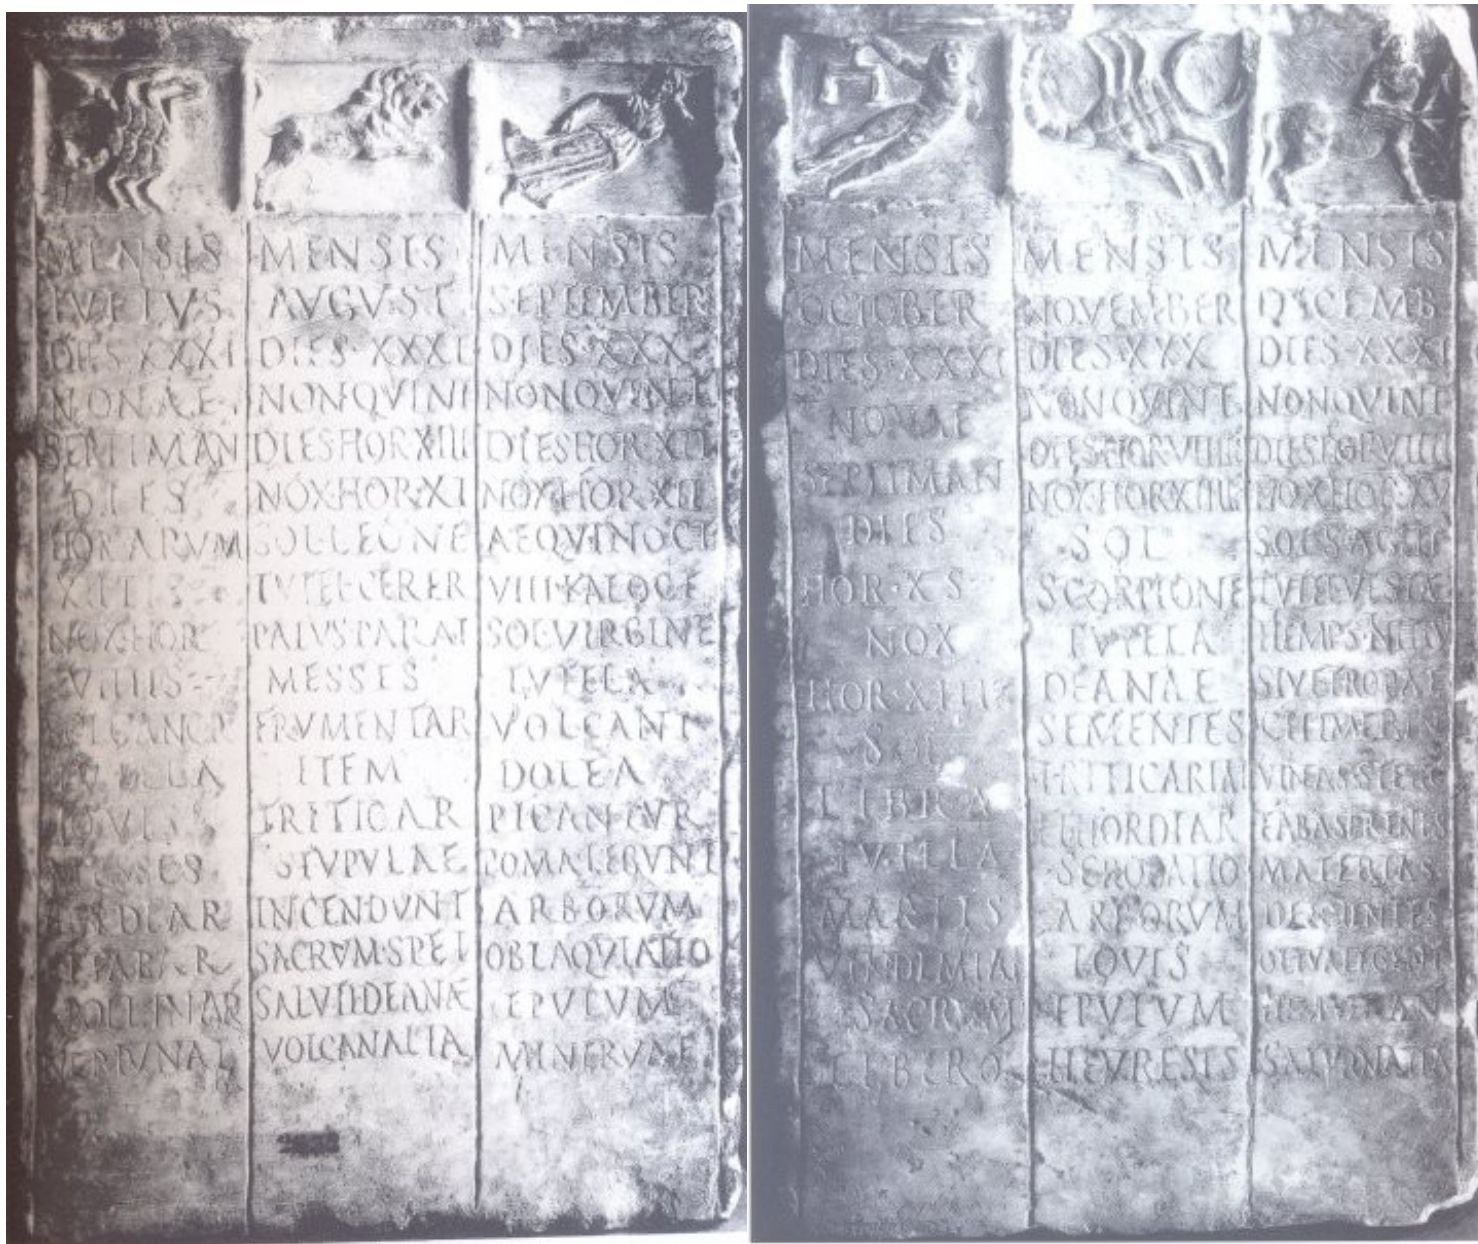 MENSIS
IVLIVS
DIES·XXXI
NONAE
SEPTIMAN
DIES
HORARVM
XIIIIS
NOX·HOR
VIIIIS
CANCR
TVTELA
IOVIS
APOLLINAR
NEPTVNAL
MENSIS
AVGVST
DIES·XXXI
NON·QVINT
DIES·HOR·XIII
NOX·HOR·XI
SOL·LEONE
TVTEL·CERER
PALVS·PARAT
MESSES
FRVMENTAR
ITEM
TRITICAR
STVPVLAE
INCENDVNT
SACRVM·SPEI
SALVTI·DEANAE
VOLCANALIA
MENSIS
SEPTEMBER
DIES·XXX
NON·QVINT
DIES·HOR·XII
NOX·HOR·XII
AEQVINOCT
VIII·KAL·OCT
SOL·VIRGINE
TVTELA
VOLCANI
DOLEA
PICANTVR
POMA·LEGVNT
ARBORVM
OBLAQVIATIO
EPVLVM
MINERVAE
MENSIS
OCTOBER
DIES·XXXI
NONAE
SEPTIMAN
DIES
HOR·XS
NOX
HOR·XIII
SOL
LIBRA
TVTELA
MARTIS
VINDEMIA
SACRVM
LIBERO
MENSIS
NOVEMBER
DIES·XXX
NON·QVINT
DIES·HOR·VIIII
NOX·HOR·XIIII
SOL
SCORPIONE
TVTELA
DEANAE
SEMENTES
TRITICARIAE
ET·HORDIAR
SCROBATIO
ARBORVM
IOVIS
EPVLVM
HEVRESIS
MENSIS
DECEMB
DIES·XXXI
NON·QVINT
DIES·HOR·VIIII
NOX·HOR·XV
SOL·SAGIT
TVTEL·VESTAE
HIEMPS·INITV
SIVE·TROPAE
CHIMERIN
VINEAS·STERC
FABA·SERENTES
MATERIAS
DEICIENTES
OLIVA·LEGENT
SATVRNALIA